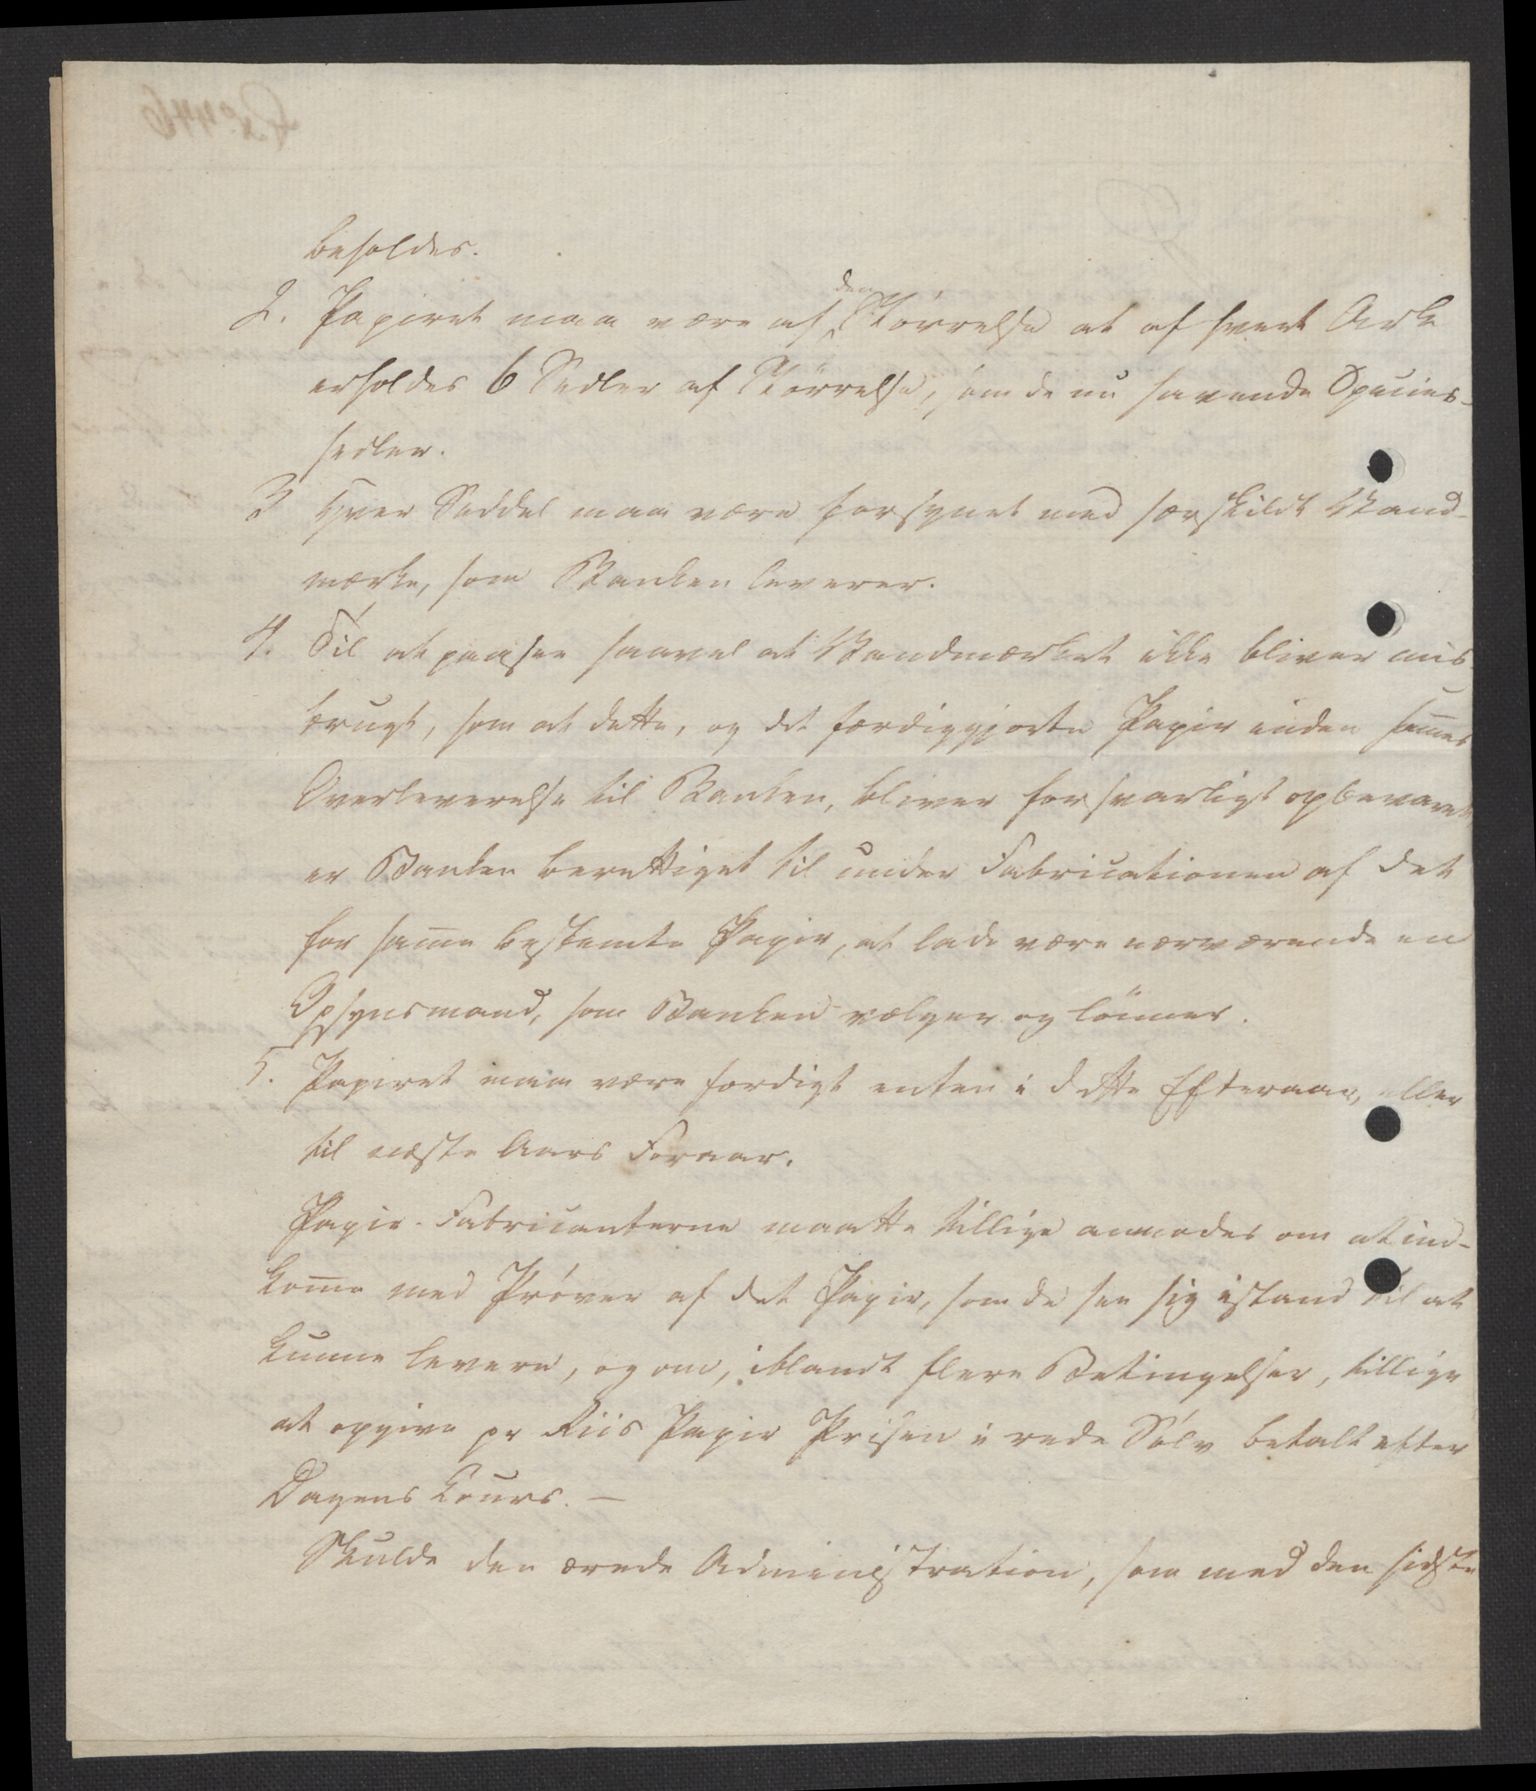 beholdes.
2. Papiret maa være af den Störrelse at af hvert Ark
erholdes 6 Sedler af Störrelse, som de nu havende Species-
sedler.
3 Hver Seddel maa være forsynet med særskildt Vand-
mærke, som Banken leverer.
4. Til at paasee saavel at Vandmærket ikke bliver mis-
brugt, som at dette, og det færdiggjorte Papir inden sam̄es
Overleverelse til Banken, bliver forsvarligt opbevaret,
er Banken berettiget til under Fabricationen af det
for sam̄e bestemte Papir, at lade være nærværende en
Opsynsmand, som Banken vælger og lönner.
5. Papiret maa være færdigt enten i dette Efteraar, eller
til næste Aars Foraar.
Papir-Fabricanterne maatte tillige anmodes om at ind-
kom̄e med Pröver af det Papir, som de see sig istand til at
kunne levere, og om, iblandt flere Betingelser, tillige
at opgive pr Riis Papir Prisen i rede Sölv betalt efter
Dagens Cours. —
Skulde den ærede Administration, som med den sidste